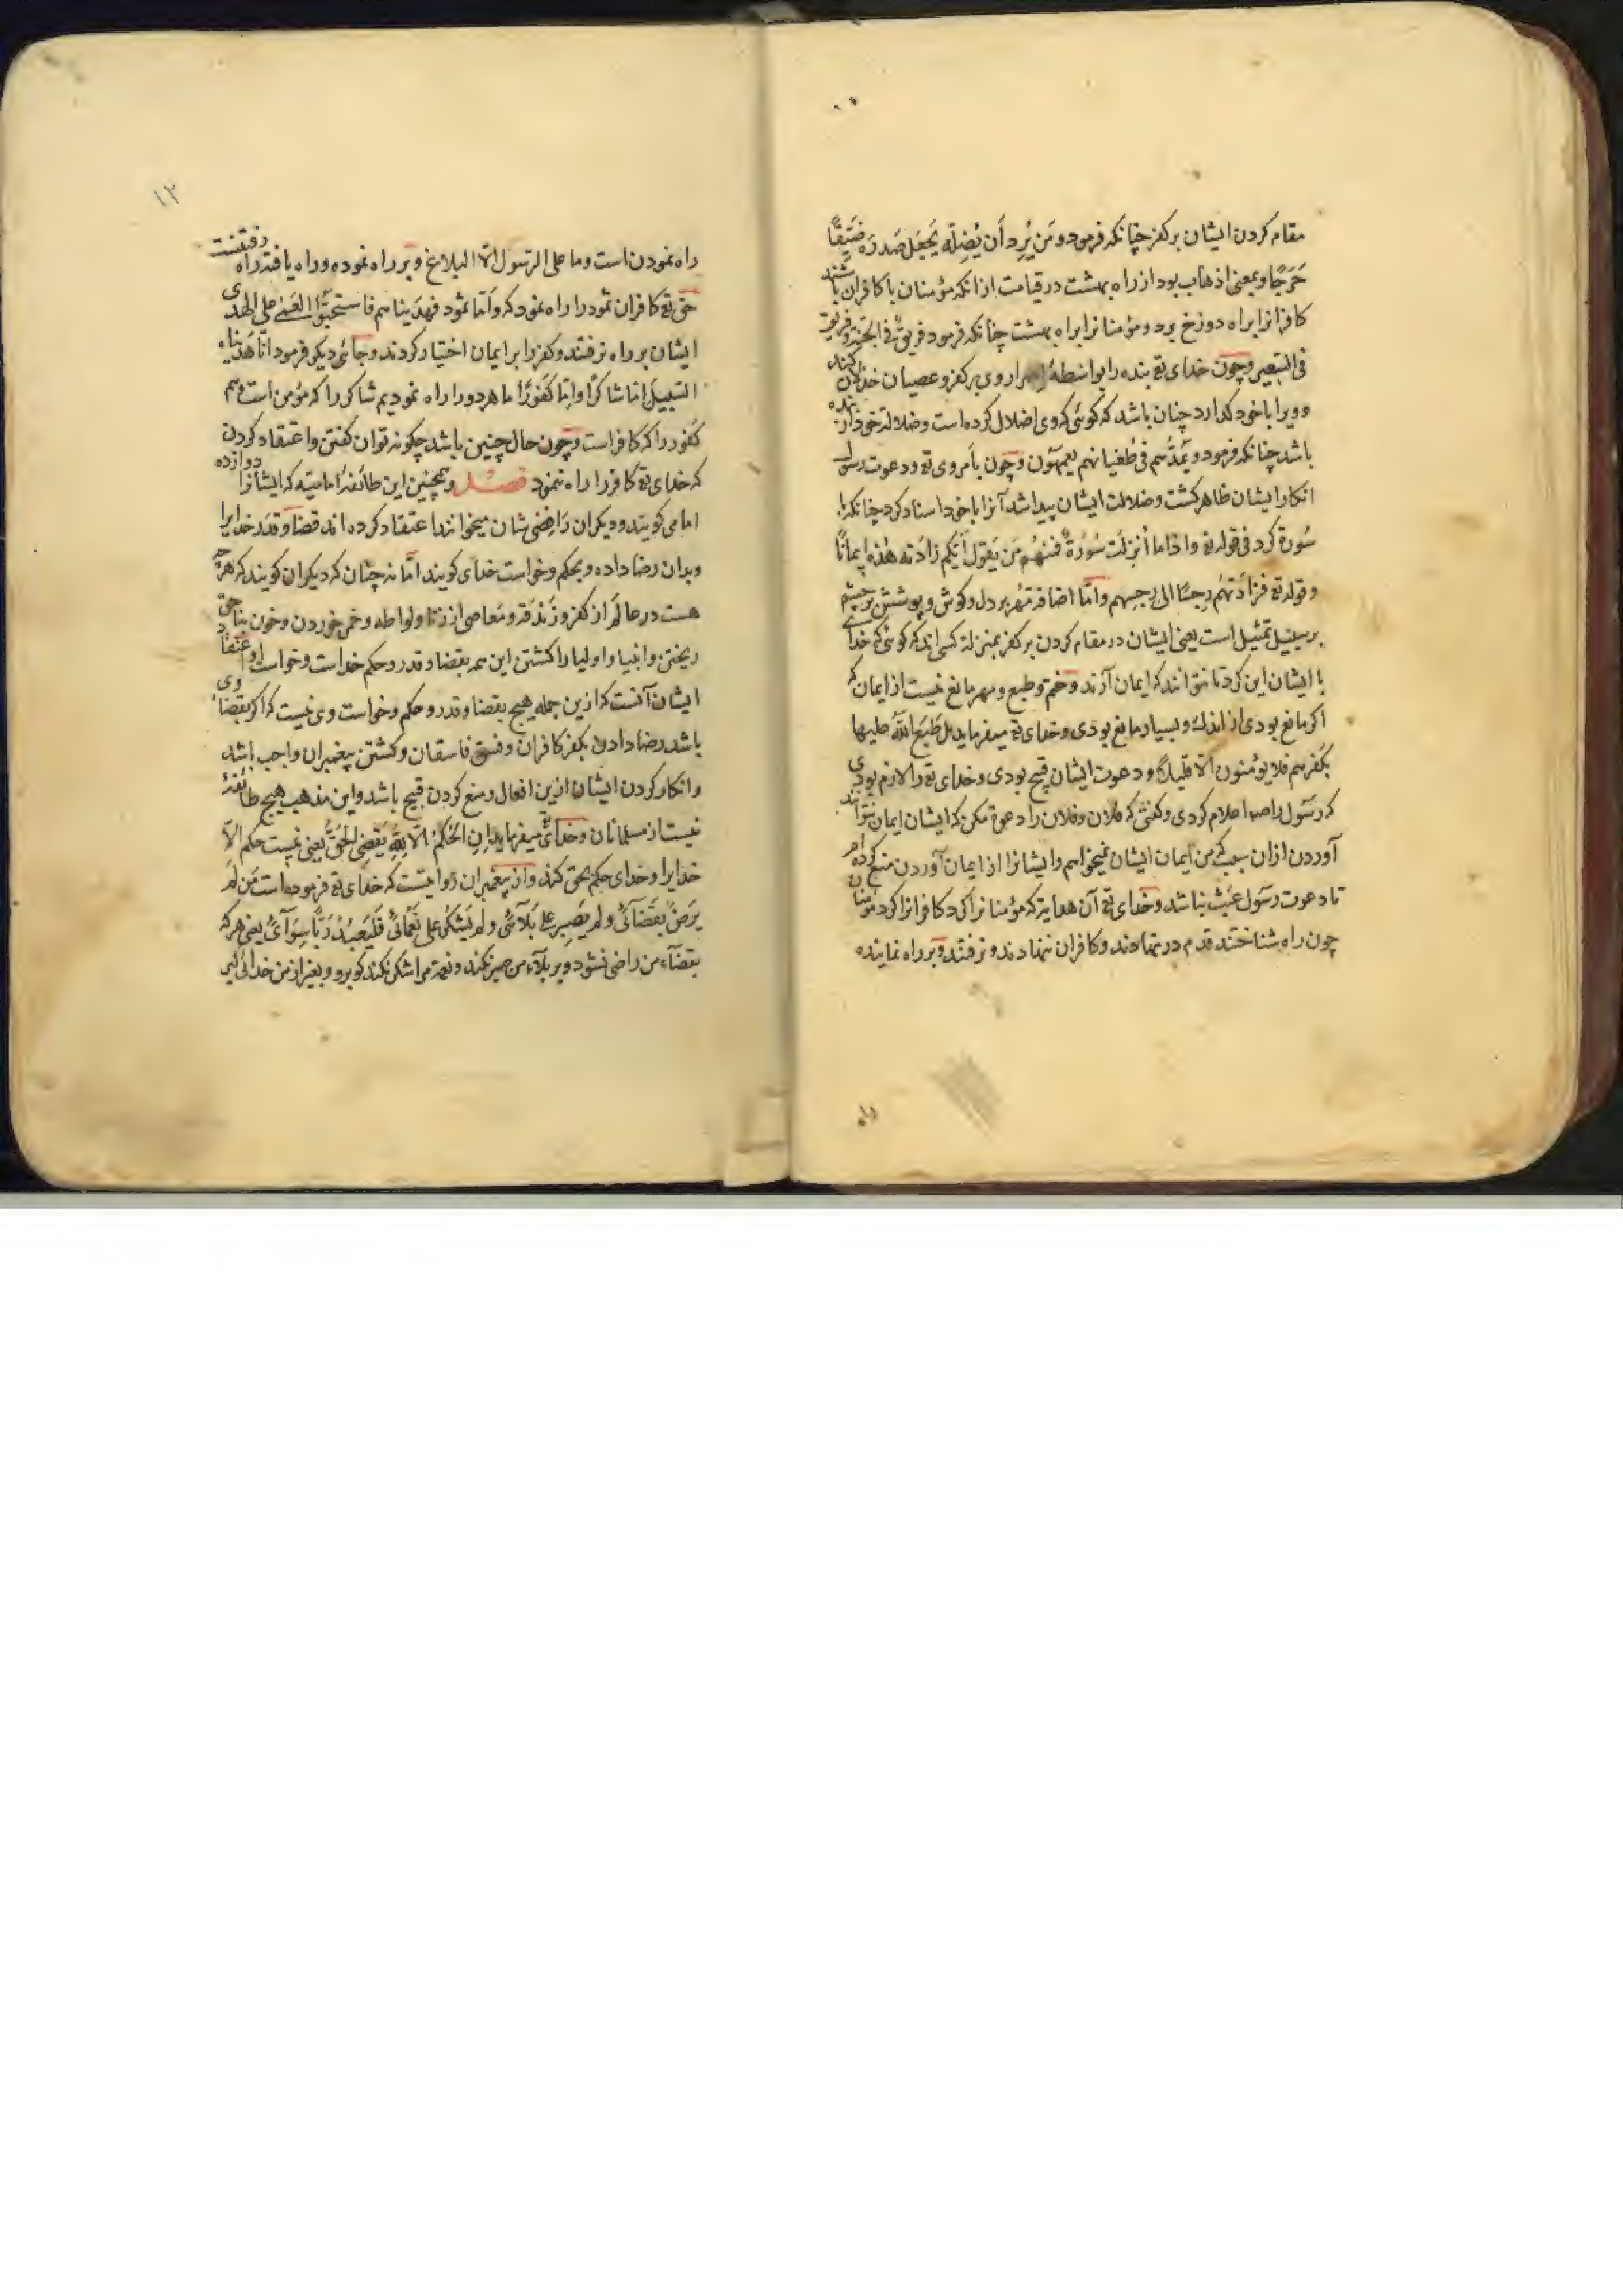 مقام کردن ایشان بر کفر چنانکه فرمود و مَن یُرِد اَن یُضِلّه یَجعَل صَدرَه ضَیّقًا
حَرَجًا و بمعنی اذهاب بود از راه بهشت در قیامت از انکه مؤمنان با کافران باشند
کافرانرا براه دوزخ برد و مؤمنانرا براه بهشت چنانکه فرمود فریقٌ فی الجنة و فریق
فی السّعیر و چون خدای تع بنده را بواسطهٔ اصرار وی بر کفر و عصیان خذلان کند
و ویرا باخود کذارد چنان باشد که کوئی که وی اضلال کرده است و ضلالة خود از بنده
باشد چنانکه فرمود و یَمُدُّهم فی طُغیانهم یعمهون و چون بأمر وی تع و دعوت رسل
انکار ایشان ظاهر کشت و ضلالت ایشان پیدا شد آنرا باخود اسناد کرد چنانکه با
سُورة کرد فی قوله تع و اذا ما اُنزِلَت سُورَةٌ فمنهُم مَن یَقول اَیّکم زادَته هٰذه ایمانًا
و قوله تع فزادَتهُم رِجسًا الی رِجسِهم و امّا اضافة مُهر بر دل و کوش و پوشش بر چشم
بر سبیل تمثیل است یعنی ایشان در مقام کردن بر کفر بمنزلهٔ کسی اند که کوئی که خدای
با ایشان این کرد تا نتوانند که ایمان آرند و ختم و طبع و مهر مانع نیست از ایمان که
اکر مانع بودی از اندک و بسیار مانع بودی و خدای تع میفرماید بل طَبَعَ اللّٰهُ علیها
بکُفرهم فلا یؤمنون الّا قلیلاً و دعوت ایشان قبیح بودی و خدای تع را لازم بودی
که رسول را ص اعلام کردی و کفتی که فلان و فلان را دعوة مکن که ایشان ایمان نتوانند
آوردن از ان سبب که من ایمان ایشان نمیخواهم و ایشانرا از ایمان آوردن منع کرده ام
تا دعوت رسول عَبَث نباشد و خدای تع آن هدایة که مؤمنانرا کرد کافرانرا کرد مؤمنان
چون راه بشناختند قدم در نهادند و کافران ننهادند و نرفتند و بر راه نماینده
۱۲
راه نمودن است و ما علی الرسول الّا البلاغ و بر راه نموده و راه یافته راه رفتنست
حق تع کافران ثمود را راه نمود که و اَمّا ثمود فهدَیناهم فاستحبّوا العَمیٰ علی الهُدی
ایشان بر راه نرفتند و کفر را بر ایمان اختیار کردند و جائی دیکر فرمود انّا هَدَیناه
السّبیلَ امّا شاکرًا و امّا کَفُورًا ما هر دو را راه نمودیم شاکر را که مؤمن است و هم
کَفُور را که کافر است و چون حال چنین باشد چکونه توان کفتن و اعتقاد کردن
که خدای تع کافر را راه ننمود فصـــل و همچنین این طائفهٔ امامیّه که ایشانرا دوازده
امامی کویند و دیکران رَافِضی شان میخوانند اعتقاد کرده اند قضاء و قَدَر خدایرا
و بدان رضا داده و بحکم و خواست خدای کویند امّا نه چنان که دیکران کویند که هرچه
هست در عالَم از کفر و زَندَقه و مَعاصی از زنا و لواطه و خمر خوردن و خون بناحق
ریختن و انبیا و اولیا را کشتن این همه بقضا و قدر و حکم خداست و خواست او و اعتقاد
ایشان آنست که ازین جمله هیچ بقضا و قدر و حکم و خواست وی نیست که اکر بقضاء وی
باشد رضا دادن بکفر کافران و فسق فاسقان و کشتن پیغمبران واجب باشد
و انکار کردن ایشان ازین افعال و منع کردن قبیح باشد و این مذهب هیچ طائفهٔ
نیست از مسلمانان و خدای تع میفرماید اِنِ الحُکمُ اِلّا لِلّٰهِ یَقضِی الحَقَّ یعنی نیست حکم الّا
خدایرا و خدای حکم بحق کند و از پیغمبران روایتست که خدای تع فرموده است مَن لَم
یَرضَ بقَضَآئی و لم یَصبِر علی بَلآئی و لم یَشکُر علی نَعمائی فَلیَعبُد رَبًّا سِوَآئی یعنی هرکه
بقضآء من راضی نشود و بر بلآء من صبر نکند و نعمة مرا شکر نکند کو برو و بغیر از من خدائی کیر